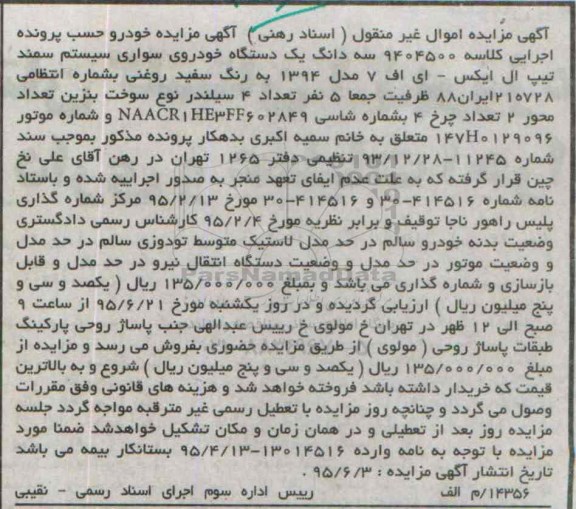 آگهی مزایده اموال غیر منقول ( اسناد رهنی ) آگهی مزایده خودرو حسب پرونده
اجرایی کلاسه ۹۴۰۴۵۰۰ سه دانگ یک دستگاه خودروی سواری سیستم سمند
تیپ ال ایکس - ای اف ۷ مدل ۱۳۹۴ به رنگ سفید روغنی بشماره انتظامی
۷۲۸ه۲۱ایران۸۸ ظرفیت جمعا ۵ نفر تعداد ۴ سیلندر نوع سوخت بنزین تعداد
محور ۲ تعداد چرخ ۴ بشماره شاسی NAACR۱HE۳FF۶۰۲۸۴۹ و شماره موتور
۱۴۷H۰۱۲۹۰۹۶ متعلق به خانم سمیه اکبری بدهکار پرونده مذکور بموجب سند
شماره ۱۱۲۴۵-۹۳/۱۲/۲۸ تنظیمی دفتر ۱۲۶۵ تهران در رهن آقای علی نخ
چین قرار گرفته که به علت عدم ایفای تعهد منجر به صدور اجراییه شده و باستاد
نامه شماره ۴۱۴۵۱۶-۳۰ و ۴۱۴۵۱۶-۳۰ مورخ ۹۵/۲/۱۳ مرکز شماره گذاری
پلیس راهور ناجا توقیف و برابر نظریه مورخ ۹۵/۲/۴ کارشناس رسمی دادگستری
وضعیت بدنه خودرو سالم در حد مدل لاستیک متوسط تودوزی سالم در حد مدل
و وضعیت موتور در حد مدل و وضعیت دستگاه انتقال نیرو در حد مدل و قابل
بازسازی و شماره گذاری می باشد و بمبلغ ۱۳۵/۰۰۰/۰۰۰ ریال ( یکصد و سی و
پنج میلیون ریال ) ارزیابی گردیده و در روز یکشنبه مورخ ۹۵/۶/۲۱ از ساعت ۹
صبح الی ۱۲ ظهر در تهران خ مولوی خ رییس عبدالهی جنب پاساژ روحی پارکینگ
طبقات پاساژ روحی ( مولوی ) از طریق مزایده حضوری بفروش می رسد و مزایده از
مبلغ ۱۳۵/۰۰۰/۰۰۰ ریال ( یکصد و سی و پنج میلیون ریال ) شروع و به بالاترین
قیمت که خریدار داشته باشد فروخته خواهد شد و هزینه های قانونی وفق مقررات
وصول می گردد و چنانچه روز مزایده با تعطیل رسمی غیر مترقبه مواجه گردد جلسه
مزایده روز بعد از تعطیلی و در همان زمان و مکان تشکیل خواهدشد ضمنا مورد
مزایده با توجه به نامه وارده ۱۳۰۱۴۵۱۶-۹۵/۴/۱۳ بستانکار بیمه می باشد
تاریخ انتشار آگهی مزایده : ۹۵/۶/۳ .
۱۴۳۵۶/م الف رییس اداره سوم اجرای اسناد رسمی - نقیبی
ParsNamadData